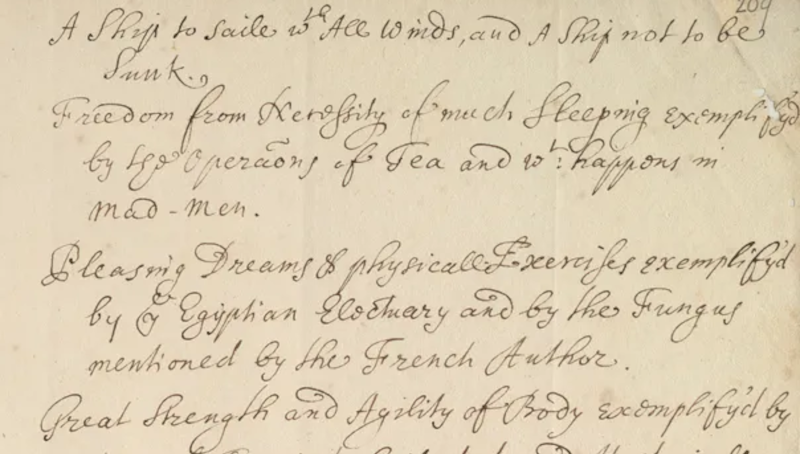 209
A Ship to saile wth All Winds, and A Ship not to be
Sunk.
Freedom from Necessity of much Sleeping exemplify'd
by the Operāons of Tea and wt: happens in
mad-men.
Pleasing Dreams & physicall Exercises exemplify'd
by ye Egyptian Electuary and by the Fungus
mentioned by the French Author.
Great Strength and Agility of Body exemplify'd by